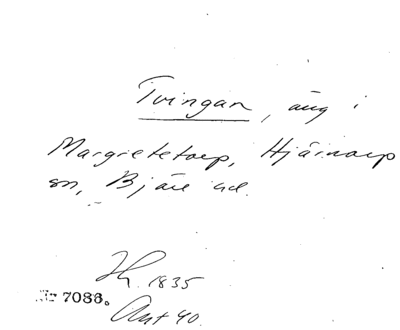 Tvingan, äng i
Margretetorp, Hjärnarp
sn, Bjäre hd.
1835
Nr 7086.
Ant 40.